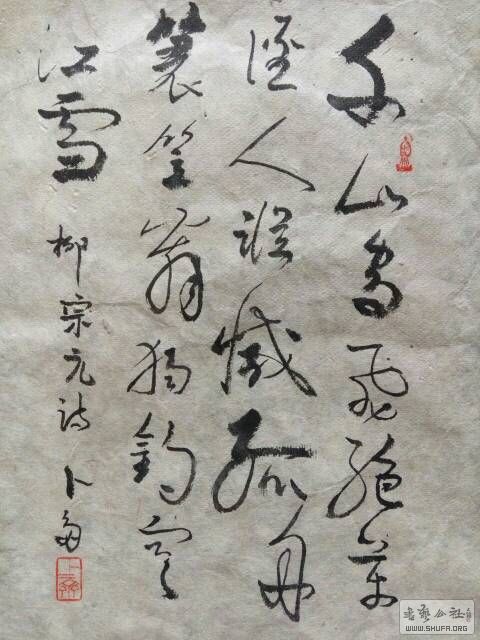 千山鸟飛絶萬
徑人蹤滅孤舟
蓑笠翁独釣寒
江雪
柳宗元詩 卜
书艺公社
WWW.SHUFA.ORG